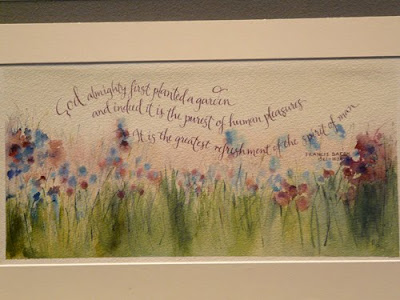 God almighty first planted a garden
and indeed it is the purest of human pleasures
It is the greatest refreshment of the spirit of man
FRANCIS BACON